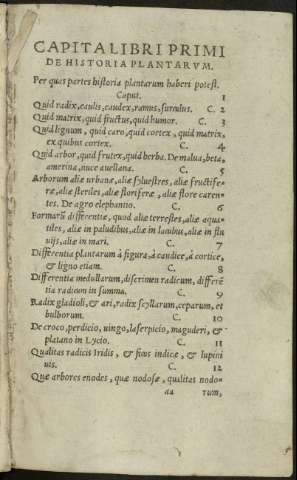 CAPITA LIBRI PRIMI
DE HISTORIA PLANTARVM.
Per quas partes historia plantarum haberi potest.
Caput. 1
Quid radix, caulis, caudex, ramus, surculus. C. 2
Quid matrix, quid fructus, quid humor. C. 3
Quid lignum, quid caro, quid cortex, quid matrix,
ex quibus cortex. C. 4
Quid arbor, quid frutex, quid herba. De malua, beta,
amerina, nuce auellana. C. 5
Arborum aliæ urbanæ, aliæ syluestres, aliæ fructife-
ræ, aliæ steriles, aliæ floriferæ, aliæ flore caren-
tes. De agro elephantio. C. 6
Formarū differentiæ, quod aliæ terrestres, aliæ aqua-
tiles, aliæ in paludibus, aliæ in lacubus, aliæ in flu
uijs, aliæ in mari. C. 7
Differentia plantarum à figura, à caudice, à cortice,
& ligno etiam. C. 8
Differentia medullarum, discrimen radicum, differē
tia radicum in summa. C. 9
Radix gladioli, & ari, radix scyllarum, ceparum, et
bulborum. C. 10
De croco, perdicio, uingo, laserpicio, maguderi, &
platano in Lycio. C. 11
Qualitas radicis Iridis, & ficus indicæ, & lupini
uis. C. 12
Quæ arbores enodes, quæ nodosæ, qualitas nodo-
da rum,